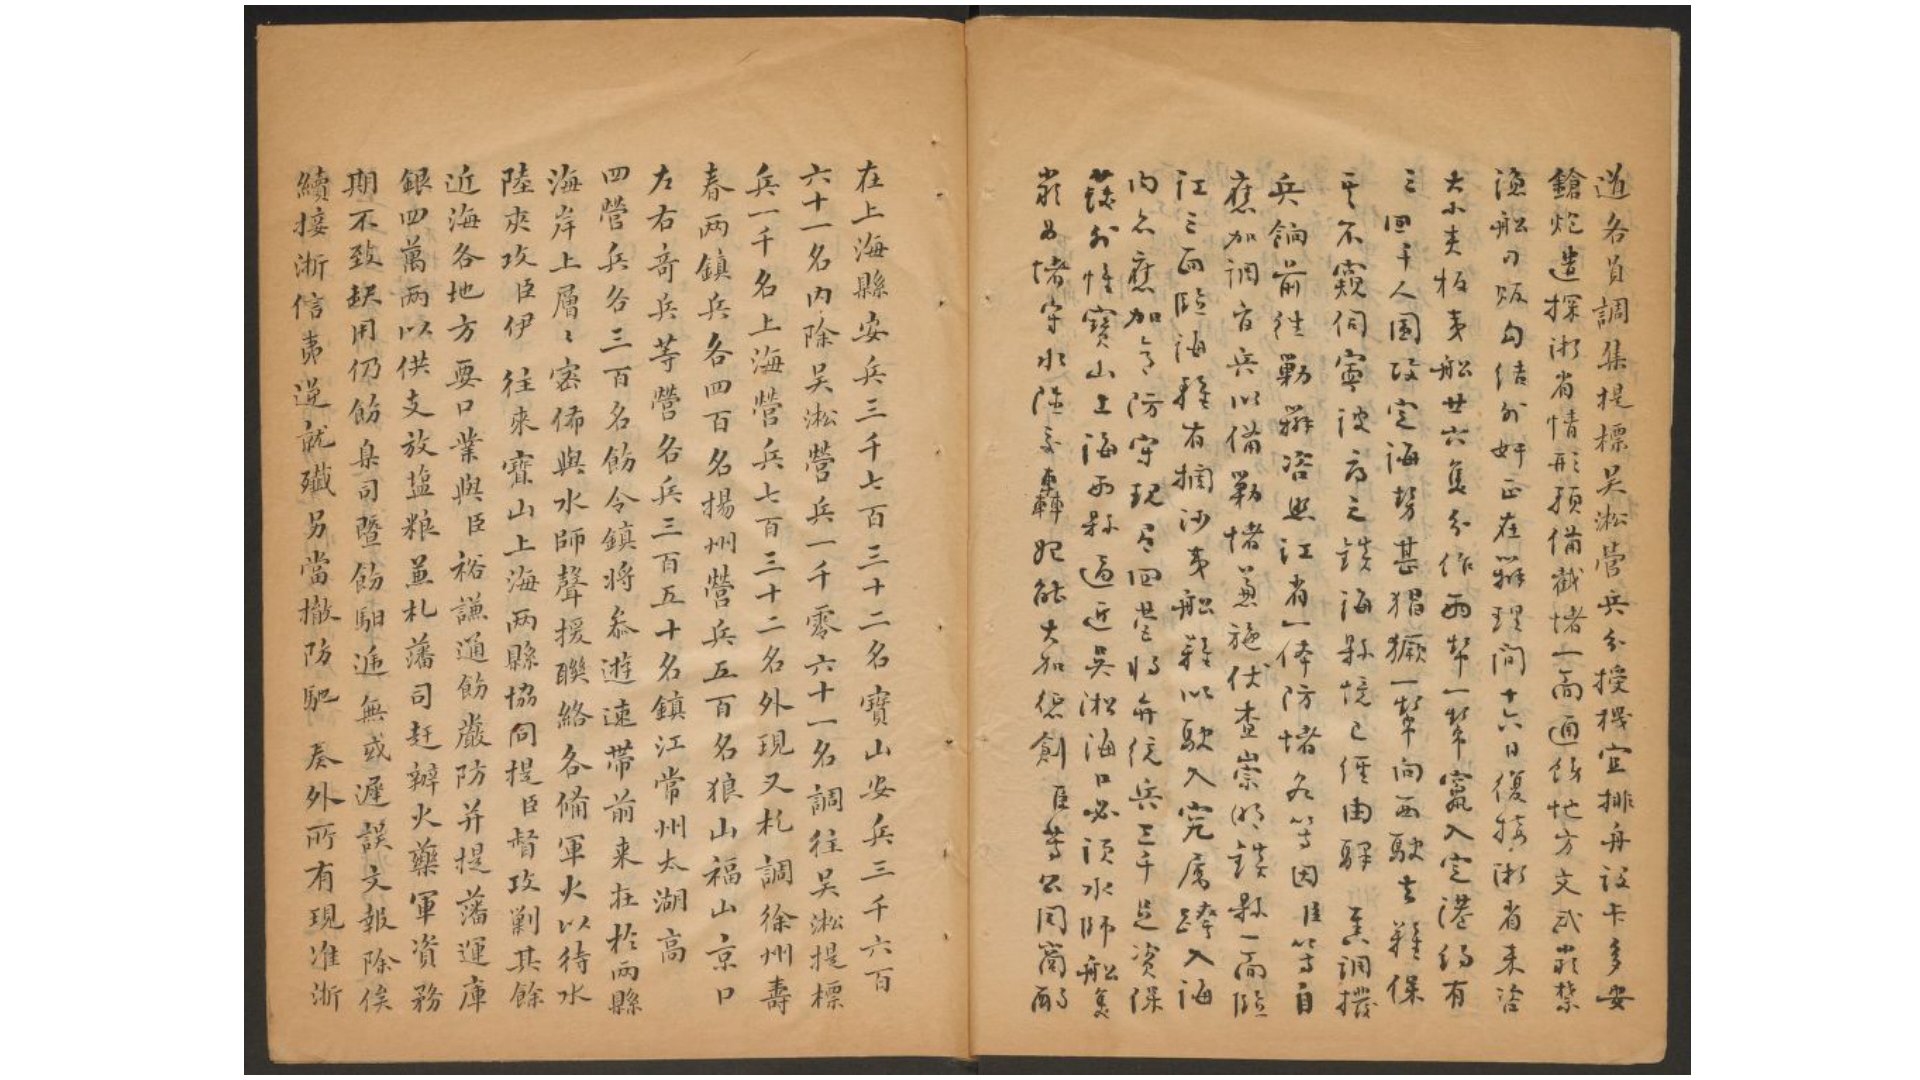 道各員調集提標吳淞營兵分授機宜排舟設卡多安
鎗炮遣探浙省情形預備截堵一面通飭地方文武嚴禁
漁船勾結外奸正在籌理間十六日復接浙省來咨
大小夾板夷船廿六隻分作兩幫一幫竄入定港約有
三四千人圍攻定海勢甚猖獗一幫向西駛去難保
其不窺伺寧波府之鎮海縣境已經由驛具調撥
兵餉前往勦辦咨照江省一体防堵各等因臣等自
應加調官兵以備勦堵並施伏查崇明鎮縣一面臨
江三面臨海雖有攔沙夷船難以駛入究屬跨入海
內亦應加意防守現有四營將弁統兵三千足資保
護外惟寶山上海兩縣逼近吳淞海口必須水師船隻
嚴為堵守水陸交轟始能大加懲創臣等公同商酌
在上海縣安兵三千七百三十二名寶山安兵三千六百
六十一名內除吳淞營兵一千零六十一名調往吳淞提標
兵一千名上海營兵七百三十二名外現又札調徐州壽
春兩鎮兵各四百名揚州營兵五百名狼山福山京口
左右奇兵等營各兵三百五十名鎮江常州太湖高
四營兵各三百名飭令鎮將叅遊速帶前来在扵兩縣
海岸上層〻密佈與水師聲援聯絡各備軍火以待水
陸夾攻臣伊 往來寶山上海兩縣協同提臣督攻剿其餘
近海各地方要口業與臣裕謙通飭嚴防并提藩運庫
銀四萬兩以供支放塩粮並札藩司赶辦火藥軍資務
期不致缺用仍飭臬司暨飭馹逓無或遲誤文報除俟
續接浙信夷逆就殲另當撤防馳 奏外所有現准浙